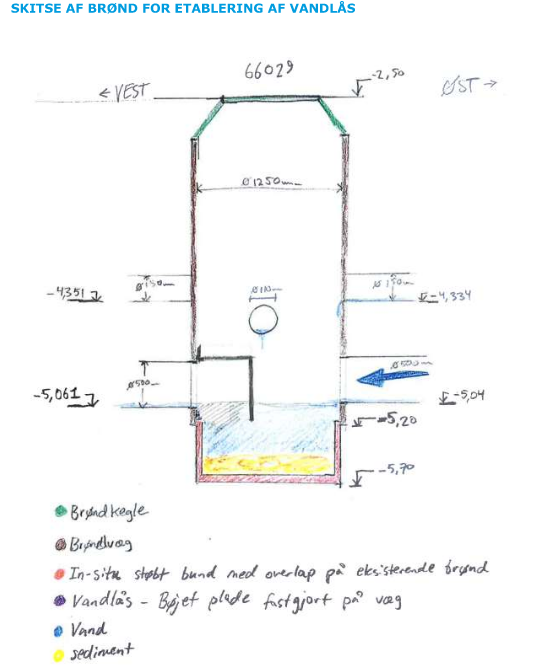 SKITSE AF BRØND FOR ETABLERING AF VANDLÅS
66029
← VEST
-2,50
ØST →
Ø1250mm
Ø150mm
Ø110mm
Ø150mm
-4,351
-4,334
Ø500mm
Ø500mm
-5,061
-5,04
-5,20
-5,70
Brøndkegle
Brøndvæg
In-situ støbt bund med overlap på eksisterende brønd
Vandlås - Bøjet plade fastgjort på væg
Vand
sediment